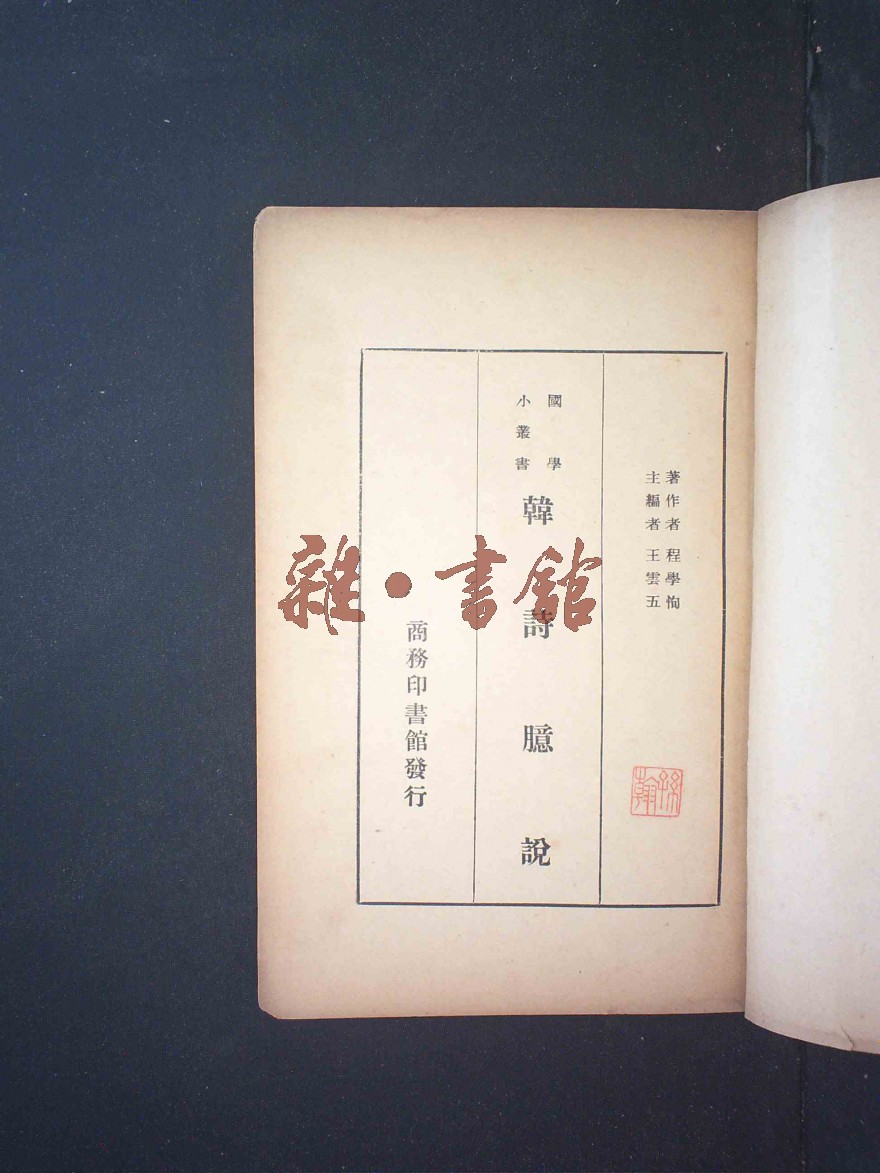 著作者 程學恂
主編者 王雲五
國學
小叢書
韓詩臆說
商務印書館發行
雜·書館